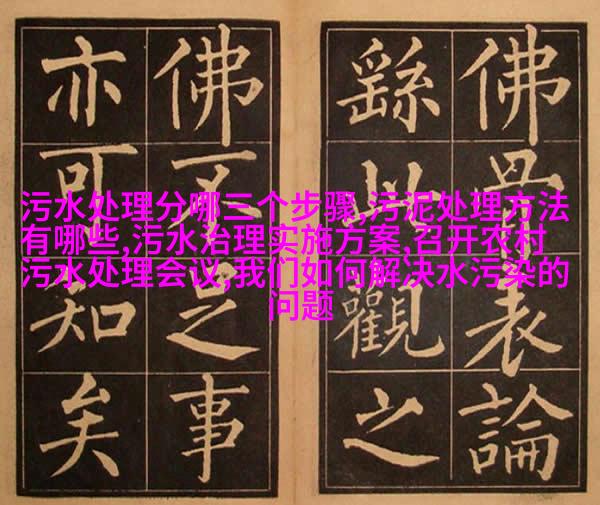 污水处理分哪三个步骤,污泥处理方法
有哪些,污水治理实施方案,召开农村
污水处理会议,我们如何解决水污染的
问题
佛骨表論
繇此觀之
佛不足事
亦可知矣